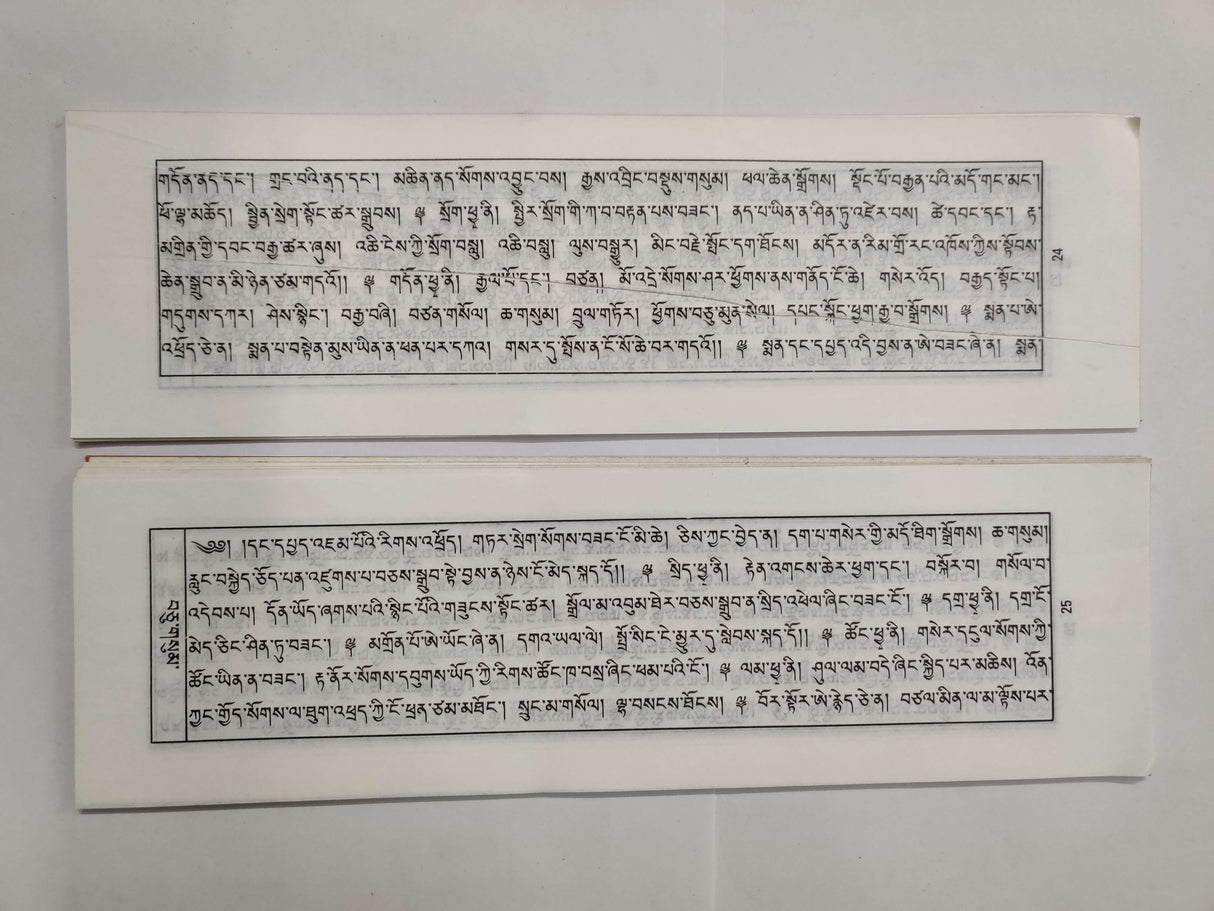 གདོན་ནད་དང་། གྲང་བའི་ནད་དང་། མཆིན་ནད་སོགས་འབྱུང་བས། རྒྱས་འབྲིང་བསྡུས་གསུམ། ཕལ་ཆེན་སྒྲོགས། སྡོང་པོ་བརྒྱན་པའི་མདོ་གང་མང་།
ཕོ་ལྷ་མཆོད། སྦྱིན་སྲེག་སྟོང་ཚར་སྒྲུབས། ༈ སྲོག་ཕྱྭ་ནི། སྤྱིར་སྲོག་གི་ཀ་བ་བརྟན་པས་བཟང་། ནད་པ་ཡིན་ན་ཤིན་ཏུ་འཛེར་བས། ཚེ་དབང་དང་། རྟ་
མགྲིན་གྱི་དབང་བརྒྱ་ཚར་ཞུས། འཆི་ངེས་ཀྱི་སྲོག་བསླུ། འཆི་བསླུ། ལུས་བསྒྱུར། མིང་བརྗེ་སྤོང་དག་ཐོངས། མདོར་ན་རིམ་གྲོ་རང་འཁོས་ཀྱིས་སྟོབས་
ཆེན་སྒྲུབ་ན་མི་ཉེན་ཙམ་གདའོ།། ༈ གདོན་ཕྱྭ་ནི། རྒྱལ་པོ་དང་། བཙན། མོ་འདྲེ་སོགས་ཤར་ཕྱོགས་ནས་གནོད་ངོ་ཆེ། གསེར་འོད། བརྒྱད་སྟོང་པ།
གདུགས་དཀར། ཤེས་སྙིང་། བརྒྱ་བཞི། བཙན་གསོལ། ཆ་གསུམ། བྲུལ་གཏོར། ཕྱོགས་བཅུ་མུན་སེལ། དཔང་སྐོང་ཕྱག་རྒྱ་བ་སྒྲོགས། ༈ སྨན་པ་ཨེ་
འཕྲོད་ཅེ་ན། སྨན་པ་བསྟེན་མུས་ཡིན་ན་ཕན་པར་དཀའ། གསར་དུ་སྤོས་ན་ངོ་སོ་ཆེ་བར་གདའོ།། ༈ སྨན་དང་དཔྱད་འདི་བྱས་ན་ཨེ་བཟང་ཞེ་ན། སྨན།
24
༄༅། །དང་དཔྱད་འཇམ་པོའི་རིགས་འཕྲོད། གཏར་སྲེག་སོགས་བཟང་ངོ་མི་ཆེ། ཅིས་ཀྱང་བྱེད་ན། དག་པ་གསེར་གྱི་མདོ་ཐིག་སྒྲོགས། ཆ་གསུམ།
རླུང་བསྐྱེད་ཅོད་པན་འཛུགས་པ་བཅས་སྒྲུབ་སྟེ་བྱས་ན་ཉེས་ངོ་མེད་སྐད་དོ།། ༈ སྲིད་ཕྱྭ་ནི། རྟེན་འགངས་ཆེར་ཕྱག་དང་། བསྐོར་བ། གསོལ་བ་
འདེབས་པ། དོན་ཡོད་ཞགས་པའི་སྙིང་པོའི་གཟུངས་སྟོང་ཚར། སྒྲོལ་མ་འབུམ་ཐེར་བཅས་སྒྲུབ་ན་སྲིད་འཕེལ་ཞིང་བཟང་ངོ་། ༈ དགྲ་ཕྱྭ་ནི། དགྲ་ངོ་
མེད་ཅིང་ཤིན་ཏུ་བཟང་། ༈ མགྲོན་པོ་ཨེ་ཡོང་ཞེ་ན། དགའ་ཡལ་ལེ། སྤྲོ་སིང་ངེ་མྱུར་དུ་སླེབས་སྐད་དོ།། ༈ ཚོང་ཕྱྭ་ནི། གསེར་དངུལ་སོགས་ཀྱི་
ཚོང་ཡིན་ན་བཟང་། རྟ་ནོར་སོགས་དབུགས་ཡོད་ཀྱི་རིགས་ཚོང་ཁ་བསྲ་ཞིང་ཕམ་པའི་ངོ་། ༈ ལམ་ཕྱྭ་ནི། ཤུལ་ལམ་བདེ་ཞིང་སྐྱིད་པར་མཆིས། འོན་
ཀྱང་གྱོད་སོགས་ལ་ཐུག་འཕྲད་ཀྱི་ངོ་ཕྲན་ཙམ་མཐོང་། སྲུང་མ་གསོལ། ལྷ་བསངས་ཐོངས། ༈ བོར་སྟོར་ཨེ་རྙེད་ཅེ་ན། བཙལ་མིན་ལ་མ་ལྟོས་པར་
25